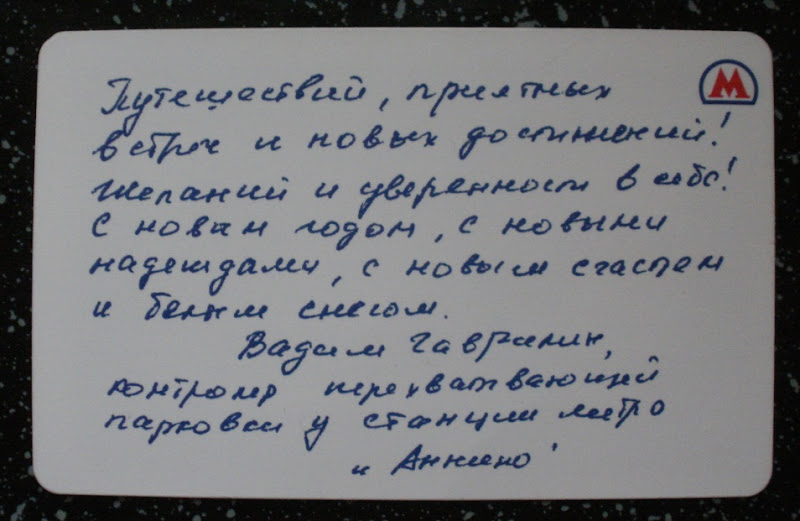 Путешествий, приятных
встреч и новых достижений!
Желаний и уверенности в себе!
С новым годом, с новыми
надеждами, с новым счастьем
и белым снегом.
Вадим Гаврилин,
контролер перехватывающей
парковки у станции метро
"Аннино"
М